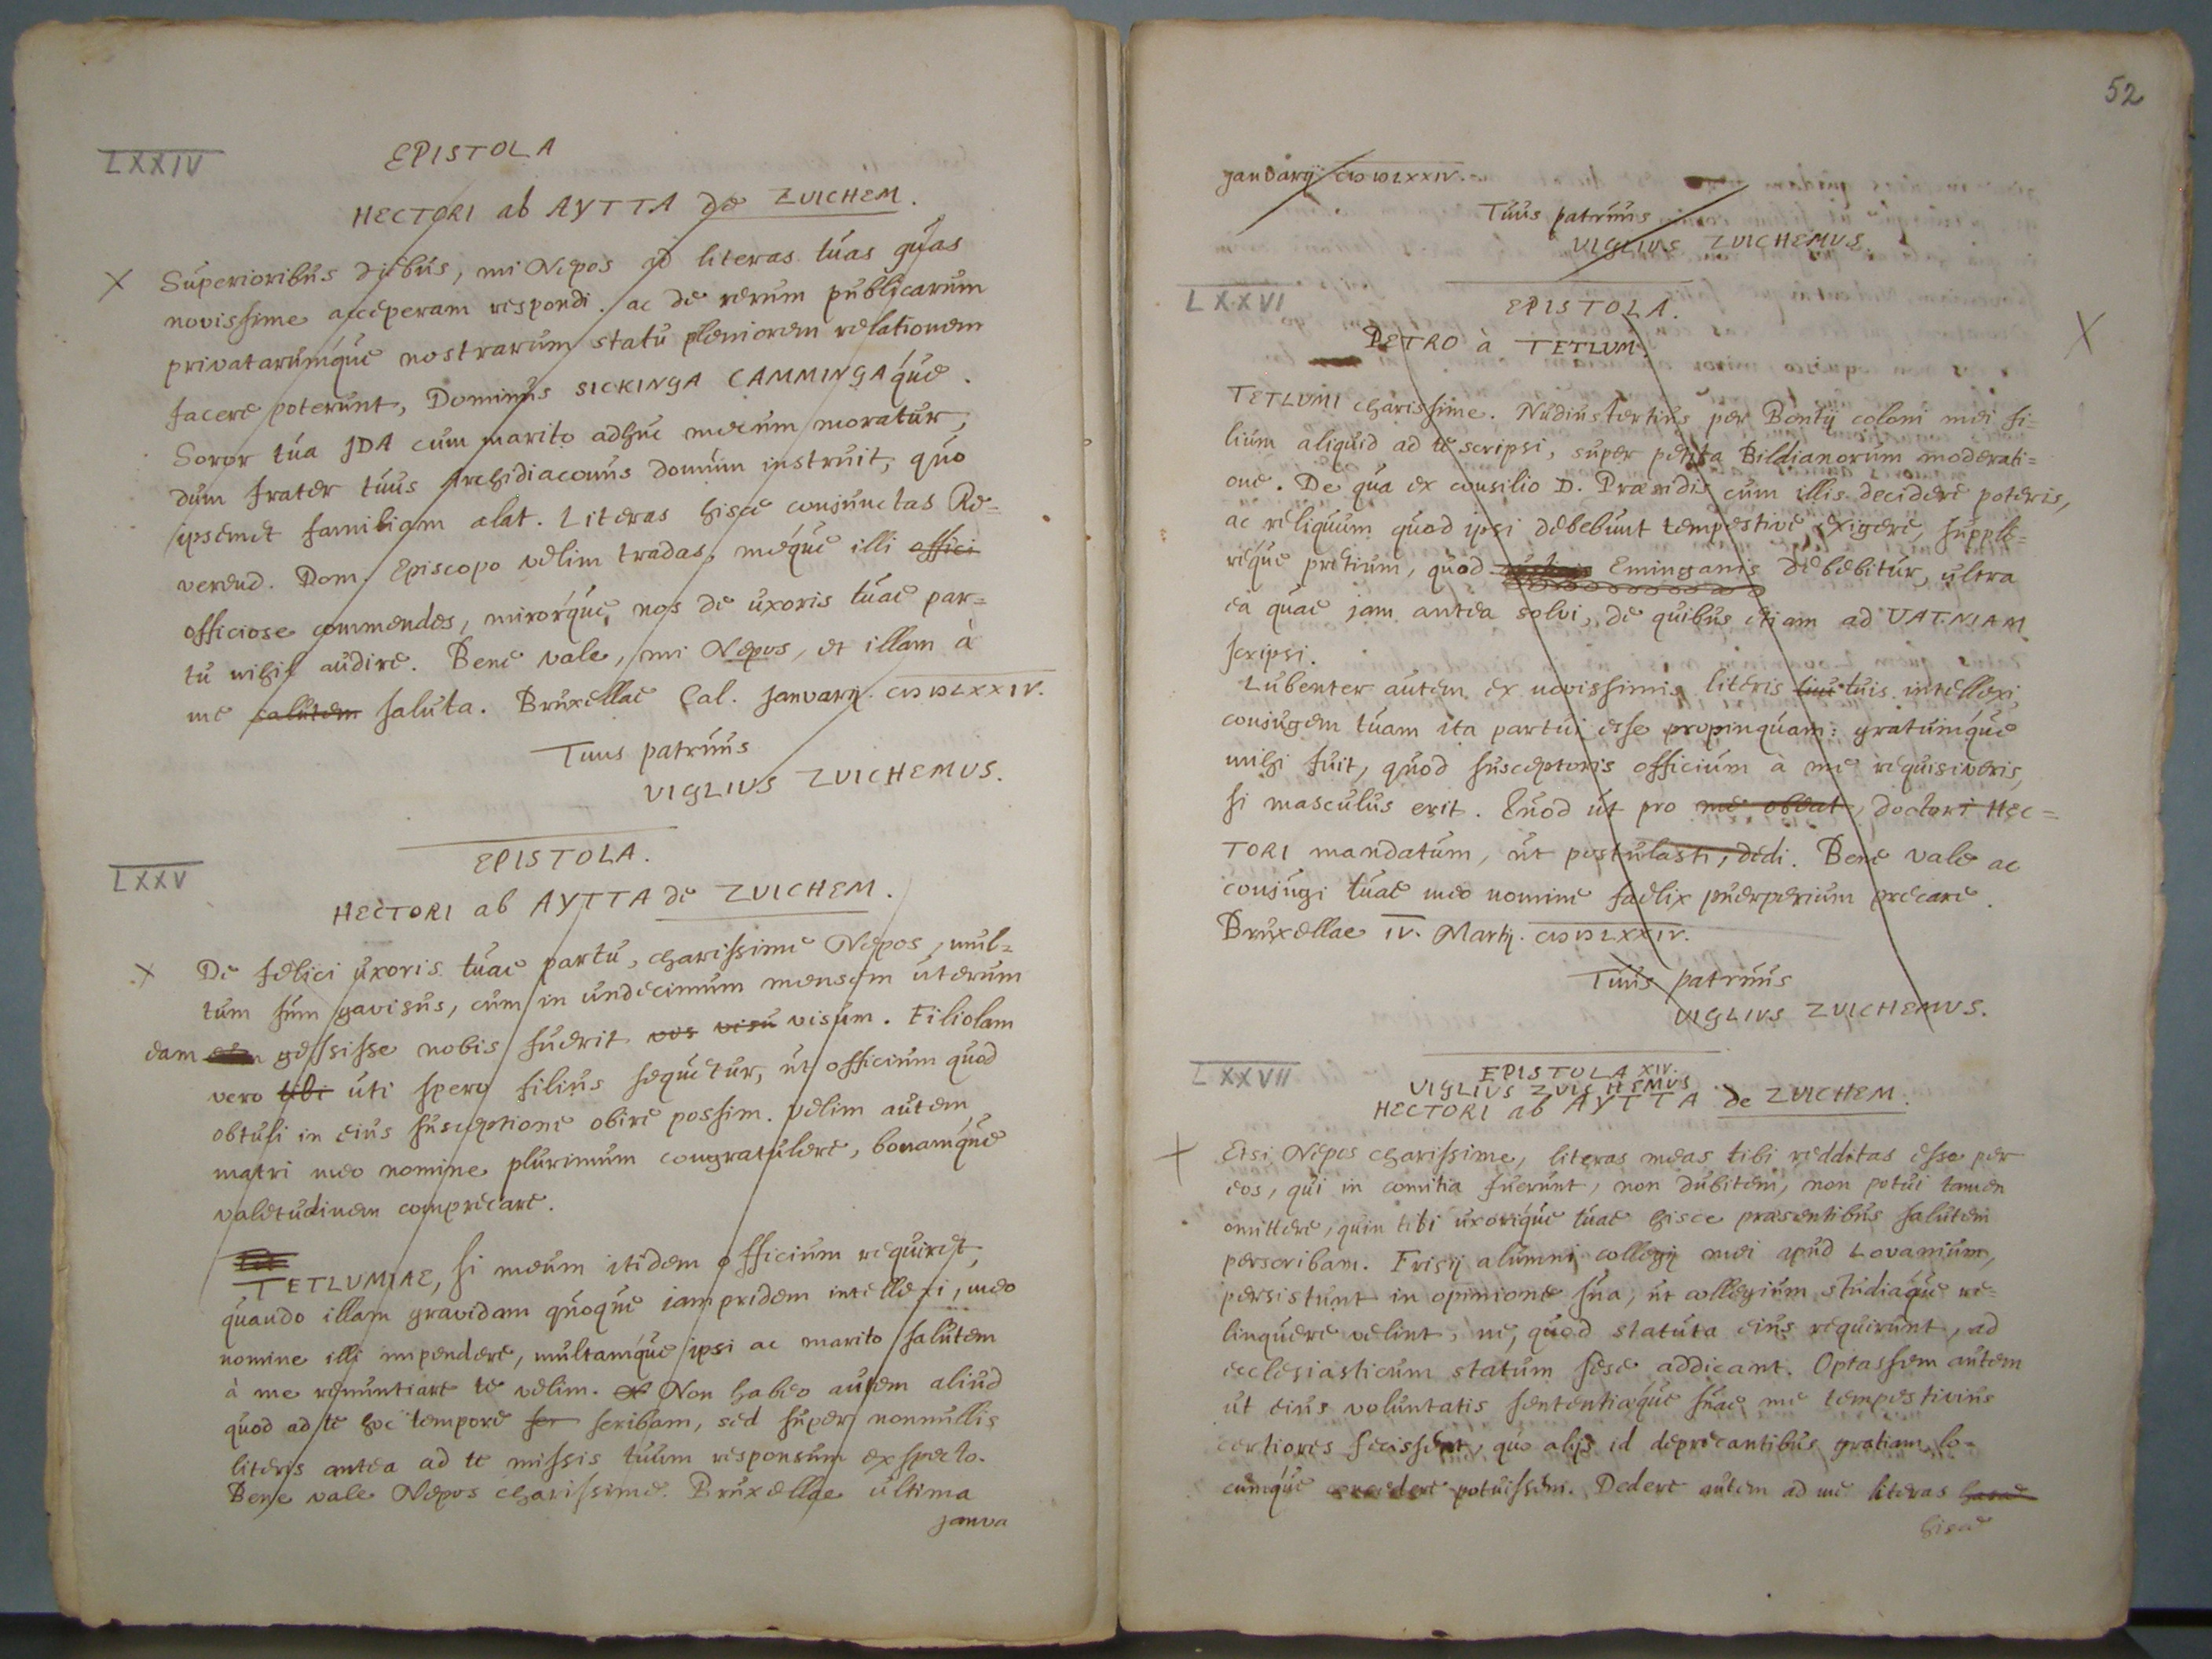 LXXIV
EPISTOLA
HECTORI ab AYTTA de ZUICHEM.
X Superioribus diebus, mi Nepos ad literas tuas quas
novissime acceperam respondi. ac de rerum publicarum
privatarumque nostrarum statu pleniorem relationem
facere poterunt, Dominus SICKINGA CAMMINGAque.
Soror tua JDA cum marito adhuc mecum moratur,
dum frater tuus Archidiaconus domum instruit, quo
ipsemet familiam alat. Literas hisce conjunctas Re=
verend. Dom. Episcopo velim tradas, meque illi offici
officiose commendes, mirorque, nos de uxoris tuae par=
tu nihil audire. Bene vale, mi Nepos, et illam à
me salutem saluta. Bruxellae Cal. Januarij. CIƆ IƆ LXXIV.
Tuus patruus
VIGLIUS ZUICHEMUS.
LXXV
EPISTOLA.
HECTORI ab AYTTA de ZUICHEM.
X De felici uxoris tuae partu, charissime Nepos, mul=
tum sum gavisus, cum in undecimum mensem uterum
eam gessisse nobis fuerit vos visu visum. Filiolam
vero tibi uti spero filius sequetur, ut officium quod
obtuli in eius susceptione obire possim. Velim autem
matri meo nomine plurimum congratulere, bonamque
valetudinem comprecare.
TETLUMIAE, si meum itidem officium requiret,
quando illam gravidam quoque iampridem intellexi, meo
nomine illi impendere, multamque ipsi ac marito salutem
à me renuntiare te velim. Non habeo autem aliud
quod ad te hoc tempore scr scribam, sed super nonnullis
literis antea ad te missis tuum responsum exspecto.
Bene vale Nepos charissime. Bruxellae ultima
Janua
52
Januarij CIƆ IƆ LXXIV.
Tuus patruus
VIGLIUS ZUICHEMUS.
LXXVI
EPISTOLA.
PETRO à TETLUM.
X
TETLUMI charissime. Nudiustertius per Bontij coloni mei fi=
lium aliquid ad te scripsi, super petita Bildianorum moderati=
one. De qua ex consilio D. Praesidis cum illis decidere poteris,
ac reliquum quod ipsi debebunt tempestive exigere, supple=
reque pretium, quod Eminganis debebitur, ultra
ea quae jam antea solvi, de quibus etiam ad VATNIAM
scripsi.
Lubenter autem ex novissimis literis tuis intellexi,
conjugem tuam ita partui esse propinquam: gratumque
mihi fuit, quod susceptoris officium à me requisiveris,
si masculus erit. Quod ut pro me obeat, doctori HEC=
TORI mandatum, ut postulasti, dedi. Bene vale ac
conjugi tuae meo nomine faelix puerperium precare.
Bruxellae IV. Martij. CIƆ IƆ LXXIV.
Tuus patruus
VIGLIUS ZUICHEMUS.
LXXVII
EPISTOLA XIV.
VIGLIUS ZUICHEMUS
HECTORI ab AYTTA de ZUICHEM.
X Etsi Nepos charissime, literas meas tibi redditas esse per
eos, qui in comitia fuerunt, non dubitem, non potui tamen
omittere, quin tibi uxorique tuae hisce praesentibus salutem
perscribam. Frisij alumni collegij mei apud Lovanium,
persistunt in opinione sua, ut collegium studiaque re=
linquere velint, ne, quod statuta eius requirunt, ad
ecclesiasticum statum sese addicant. Optassem autem
ut eius voluntatis sententiaeque suae me tempestivius
certiores fecissent, quo alijs id deprecantibus gratiam lo=
cumque concedere potuissem. Dedere autem ad me literas hasce
hisce